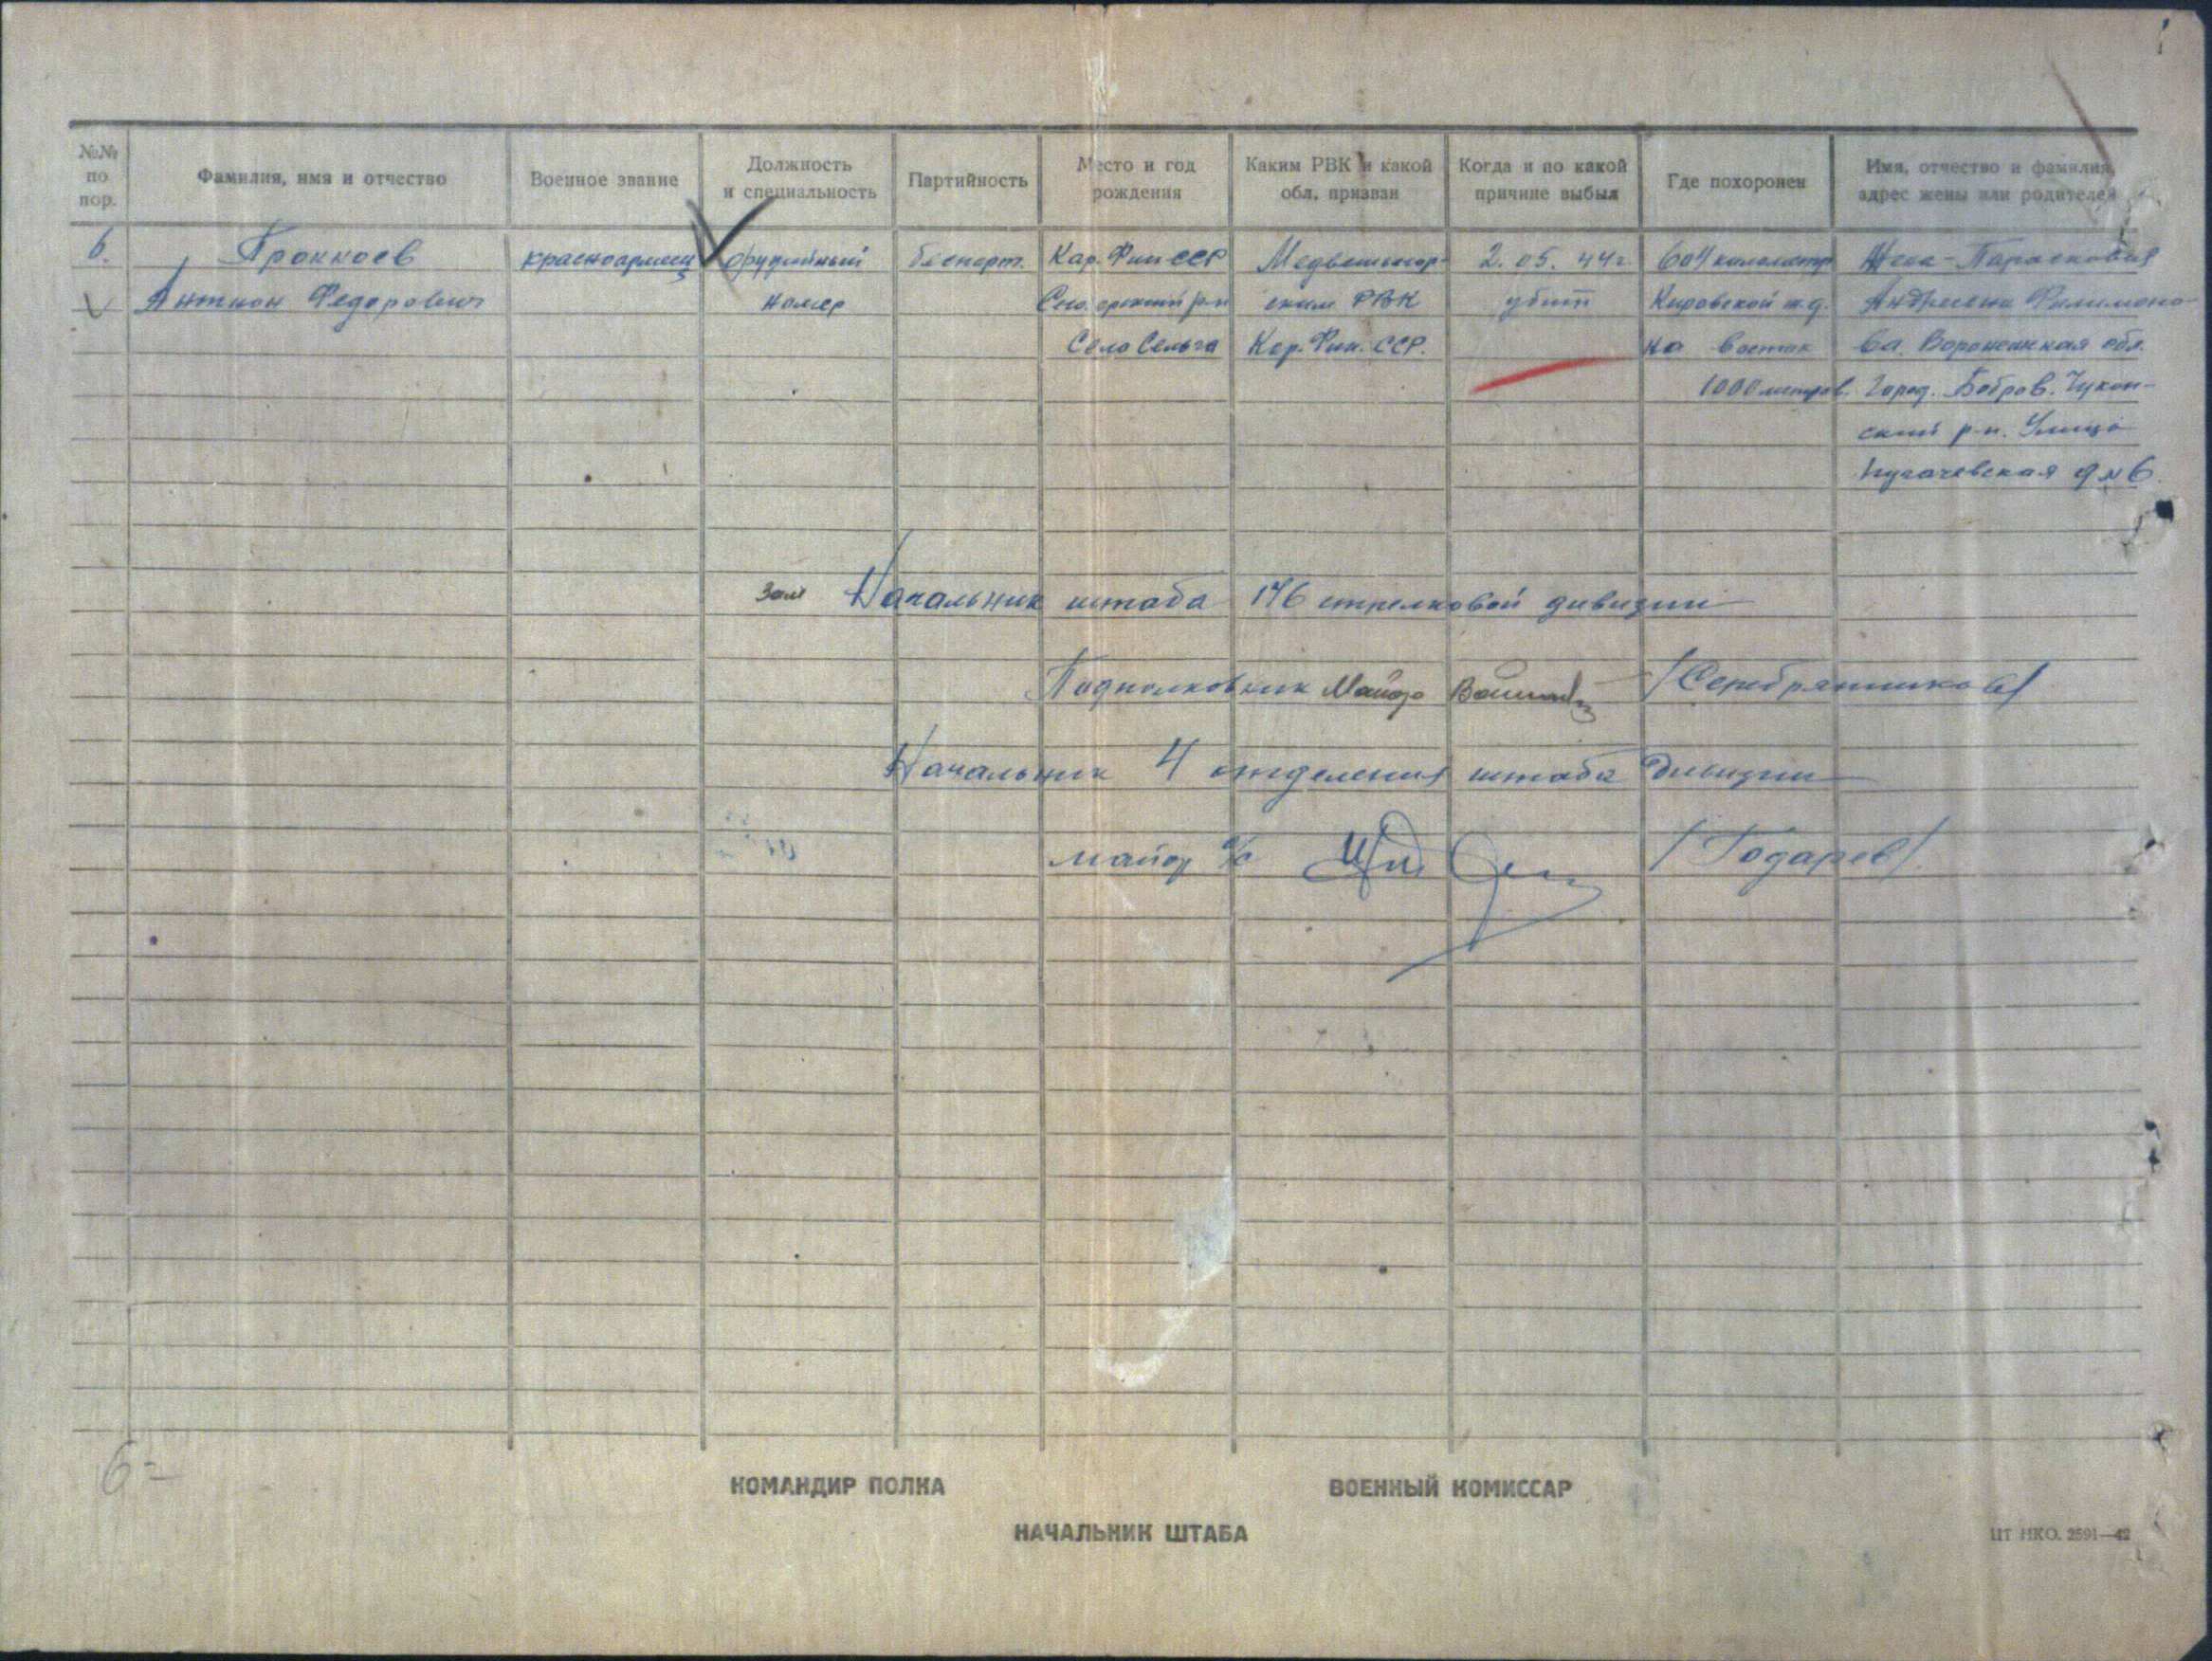 №№ по пор.
Фамилия, имя и отчество
Военное звание
Должность и специальность
Партийность
Место и год рождения
Каким РВК и какой обл. призван
Когда и по какой причине выбыл
Где похоронен
Имя, отчество и фамилия, адрес жены или родителей
6. Проккоев красноармеец орудийный беспарт. Кар. Фин ССР Медвежьегор- 2.05.44г 604 километр Жена - Парасковья
Антион Федорович номер р-н ским РВК убит Кировской ж.д. Андреевна Филимоно-
Село Сельга Кар. Фин. ССР. на восток ва. Воронежская обл.
1000 метров. Город. Бобров.
ский р-н. Улица
Пугачевская д № 6
Зам Начальник штаба 176 стрелковой дивизии
Подполковник Майор /Серебрянников/
Начальник 4 отделения штаба дивизии
майор а/с /Годарев/.
6-
КОМАНДИР ПОЛКА
ВОЕННЫЙ КОМИССАР
НАЧАЛЬНИК ШТАБА
ЦТ НКО. 2591—42